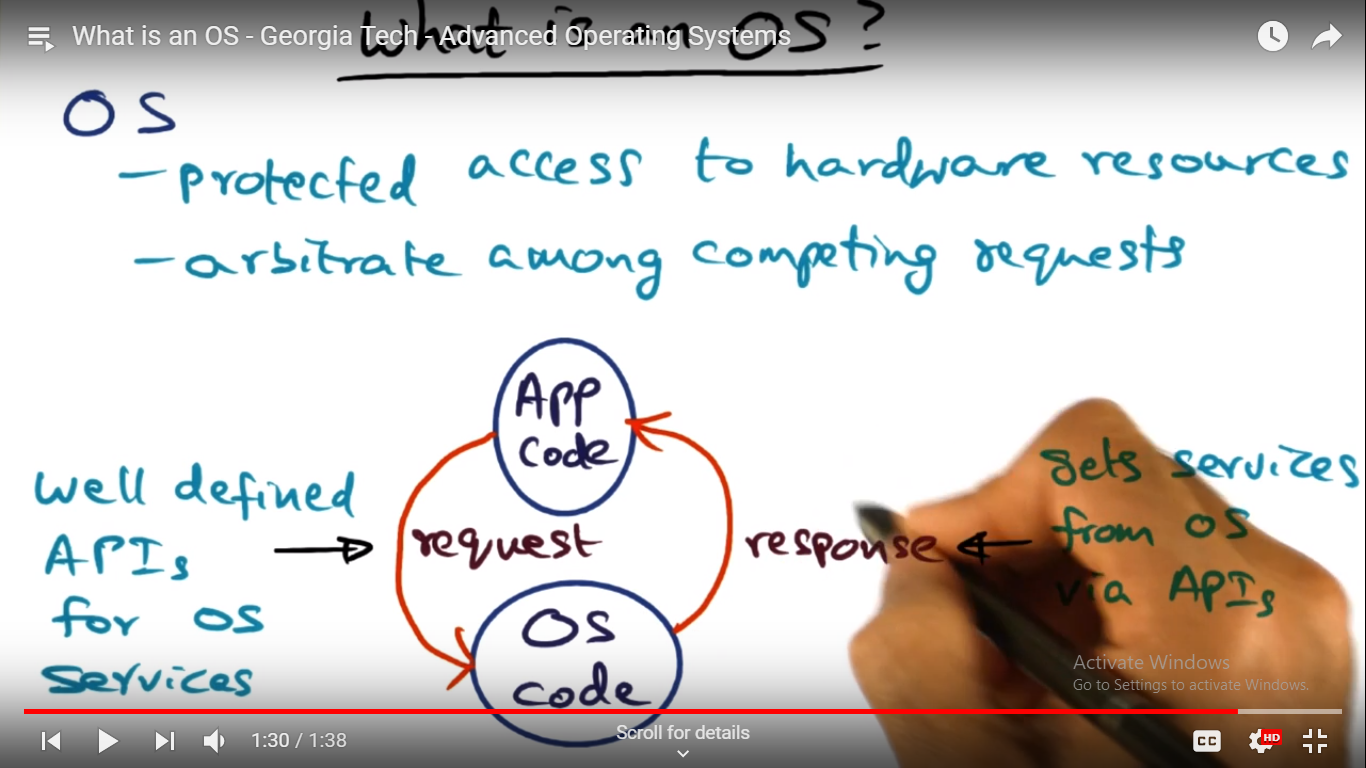 What is an OS - Georgia Tech - Advanced Operating Systems
What is an OS?
OS
- protected access to hardware resources
- arbitrate among competing requests
App
Code
well defined
APIs
for OS
services
request
response
gets services
from OS
via APIs
OS
code
Activate Windows
Go to Settings to activate Windows.
1:30 / 1:38
Scroll for details
CC
HD